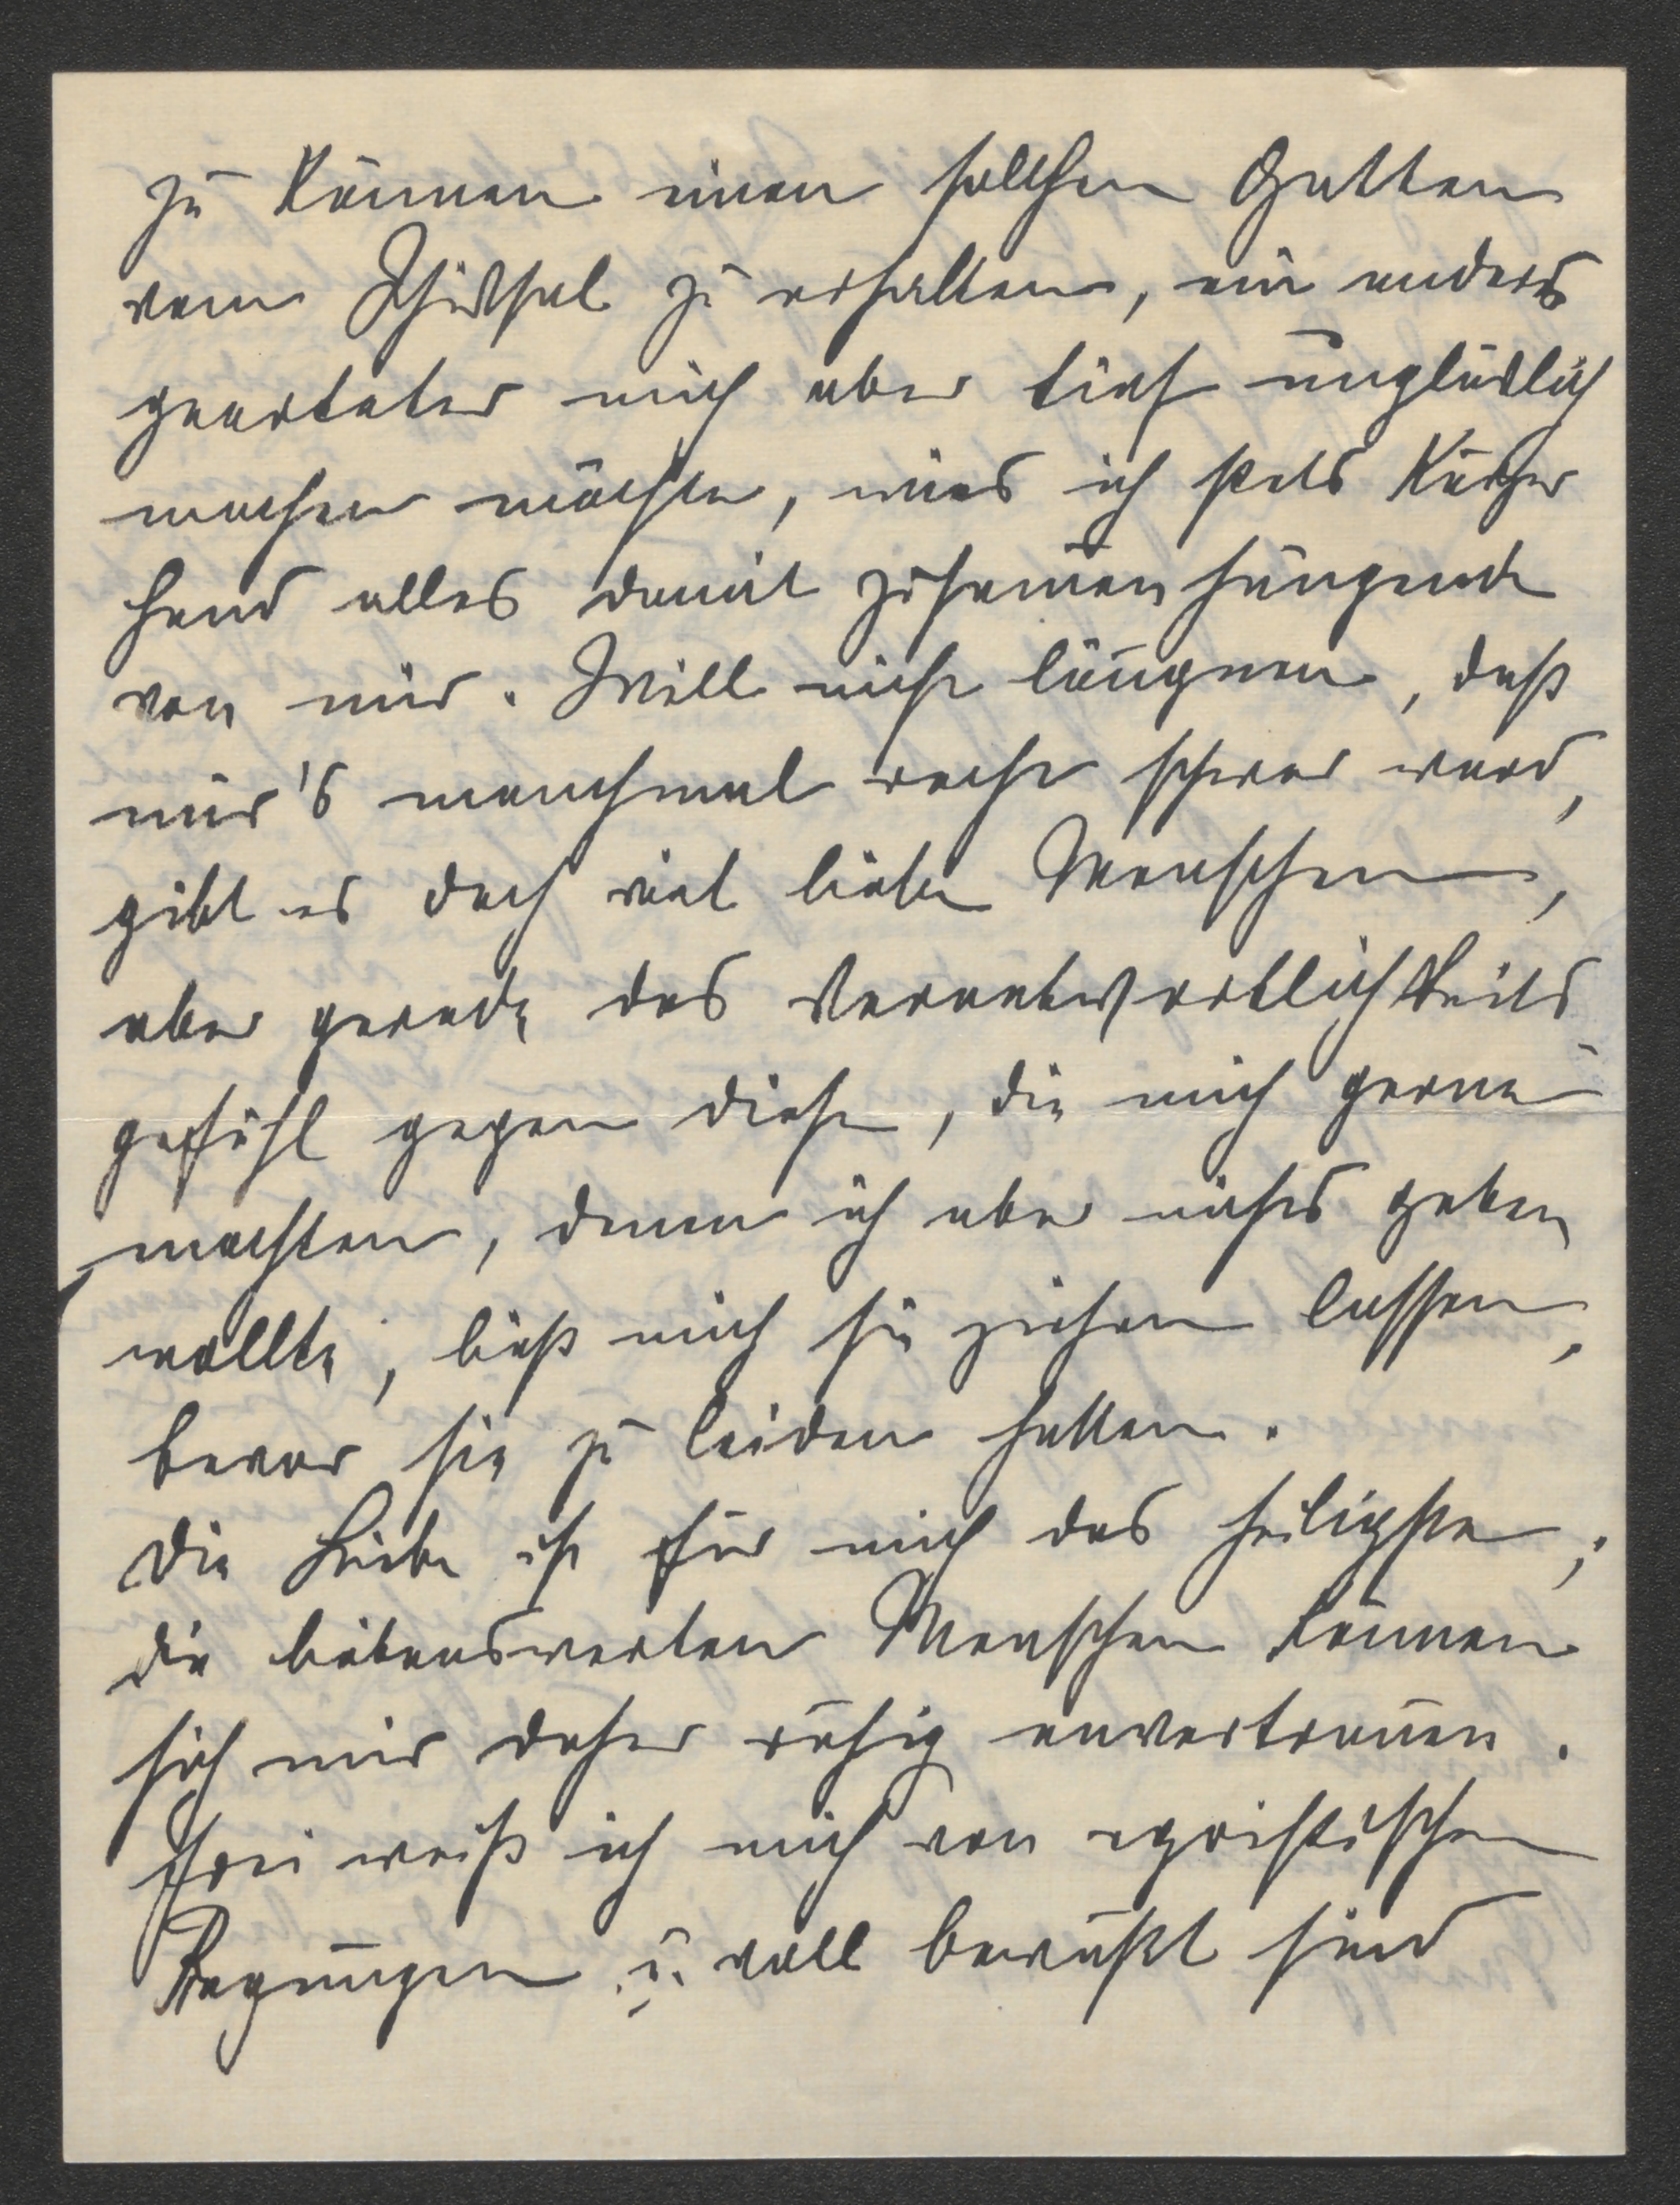 zu können einen sollchen Gatten
vom Schicksal zu erhalten, ein anders
gearteter mich aber tief unglücklich
machen möchte, wies ich stets kurzer
hand alles damit zusammenhängende
von mir. Will nicht läugnen, daß
mir's manchmal recht schwer ward,
gibt es doch viel liebe Menschen,
aber gerade das Verantwortlichkeits
gefühl gegen diese, die mich gerne
mochten, denen ich aber nichts geben
wollte, ließ mich sie ziehen lassen,
bevor sie zu leiden hatten.
Die Liebe ist für mich das heiligste;
die liebenswerten Menschen können
sich mir daher ruhig anvertrauen.
Frei weiß ich mich von egoistischen
Regungen u. voll bewußt sind